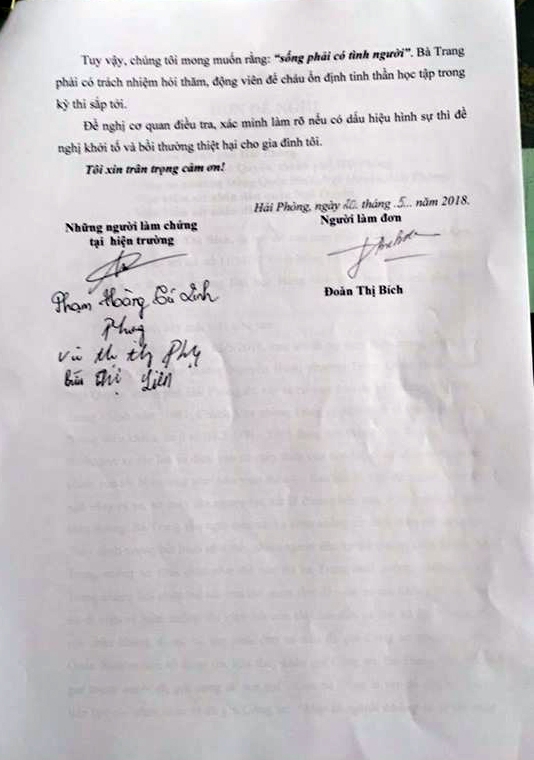 Tuy vậy, chúng tôi mong muốn rằng: “sống phải có tình người”. Bà Trang
phải có trách nhiệm hỏi thăm, động viên để cháu ổn định tinh thần học tập trong
kỳ thi sắp tới.
Đề nghị cơ quan điều tra, xác minh làm rõ nếu có dấu hiệu hình sự thì đề
nghị khởi tố và bồi thường thiệt hại cho gia đình tôi.
Tôi xin trân trọng cảm ơn!
Hải Phòng, ngày 20 tháng .5... năm 2018.
Những người làm chứng
tại hiện trường
Người làm đơn
Đoàn Thị Bích
Phạm Hoàng Linh
Phụng
Vũ thị
Bùi thị Liên